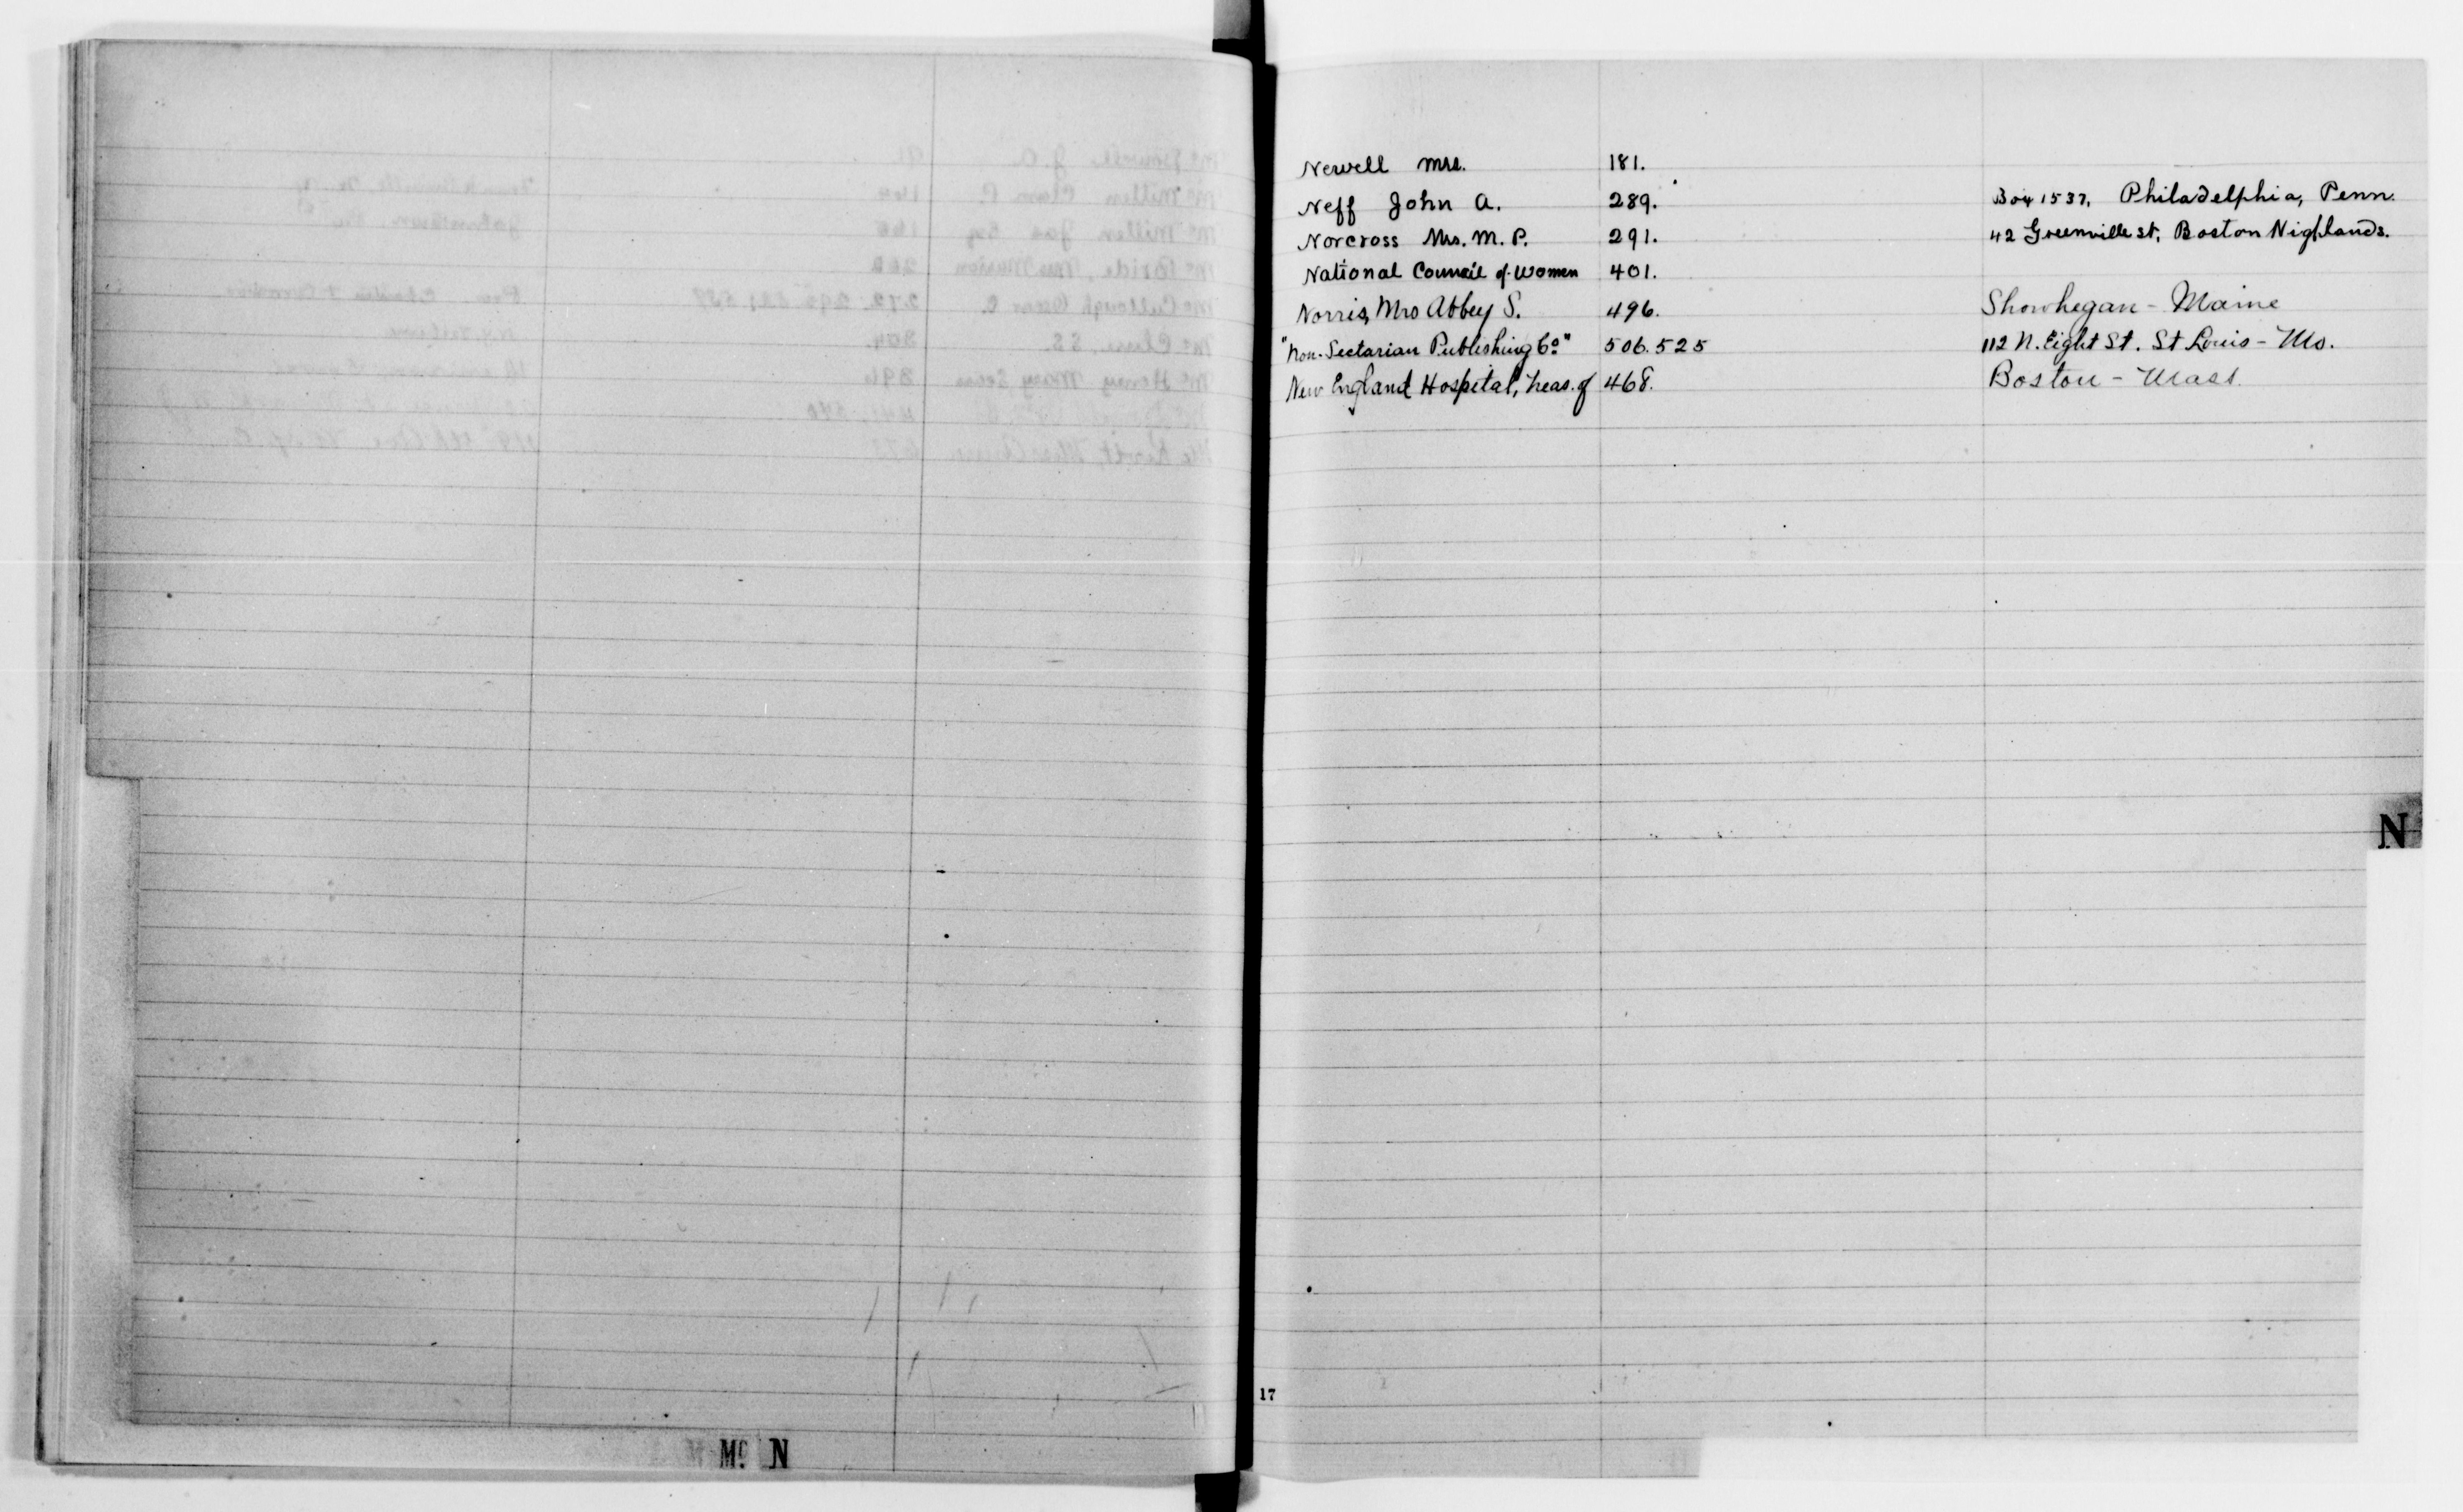 Newell Mrs. 181.
Neff John A. 289. Box 1537, Philadelphia, Penn.
Norcross Mrs. M. P. 291. 42 Greenville st, Boston Highlands.
National Council of Women 401.
Norris, Mrs Abbey S. 496. Showhegan - Maine
"Non-Sectarian Publishing Co" 506. 525 112 N. Eight St. St Louis - Mo.
New England Hospital, Treas. of 468. Boston - Mass.
N
17
Mc N